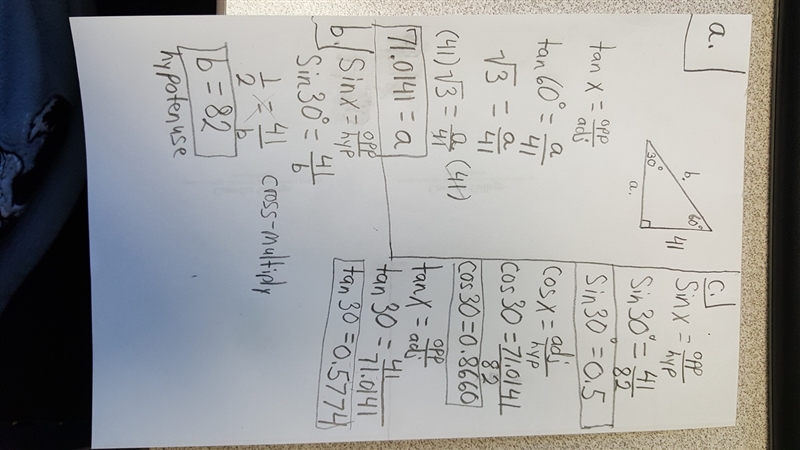 a.
30°
60°
b.
a.
41
tan x = opp/adj
tan 60° = a/41
√3 = a/41
(41)√3 = a/41 (41)
71.0141 = a
b.
Sin x = opp/hyp
Sin 30° = 41/b
1/2 = 41/b cross-multiply
b = 82
hypotenuse
C.
Sin x = opp/hyp
Sin 30° = 41/82
Sin 30° = 0.5
Cos x = adj/hyp
Cos 30 = 71.0141/82
Cos 30 = 0.8660
tan x = opp/adj
tan 30 = 41/71.0141
tan 30 = 0.5774